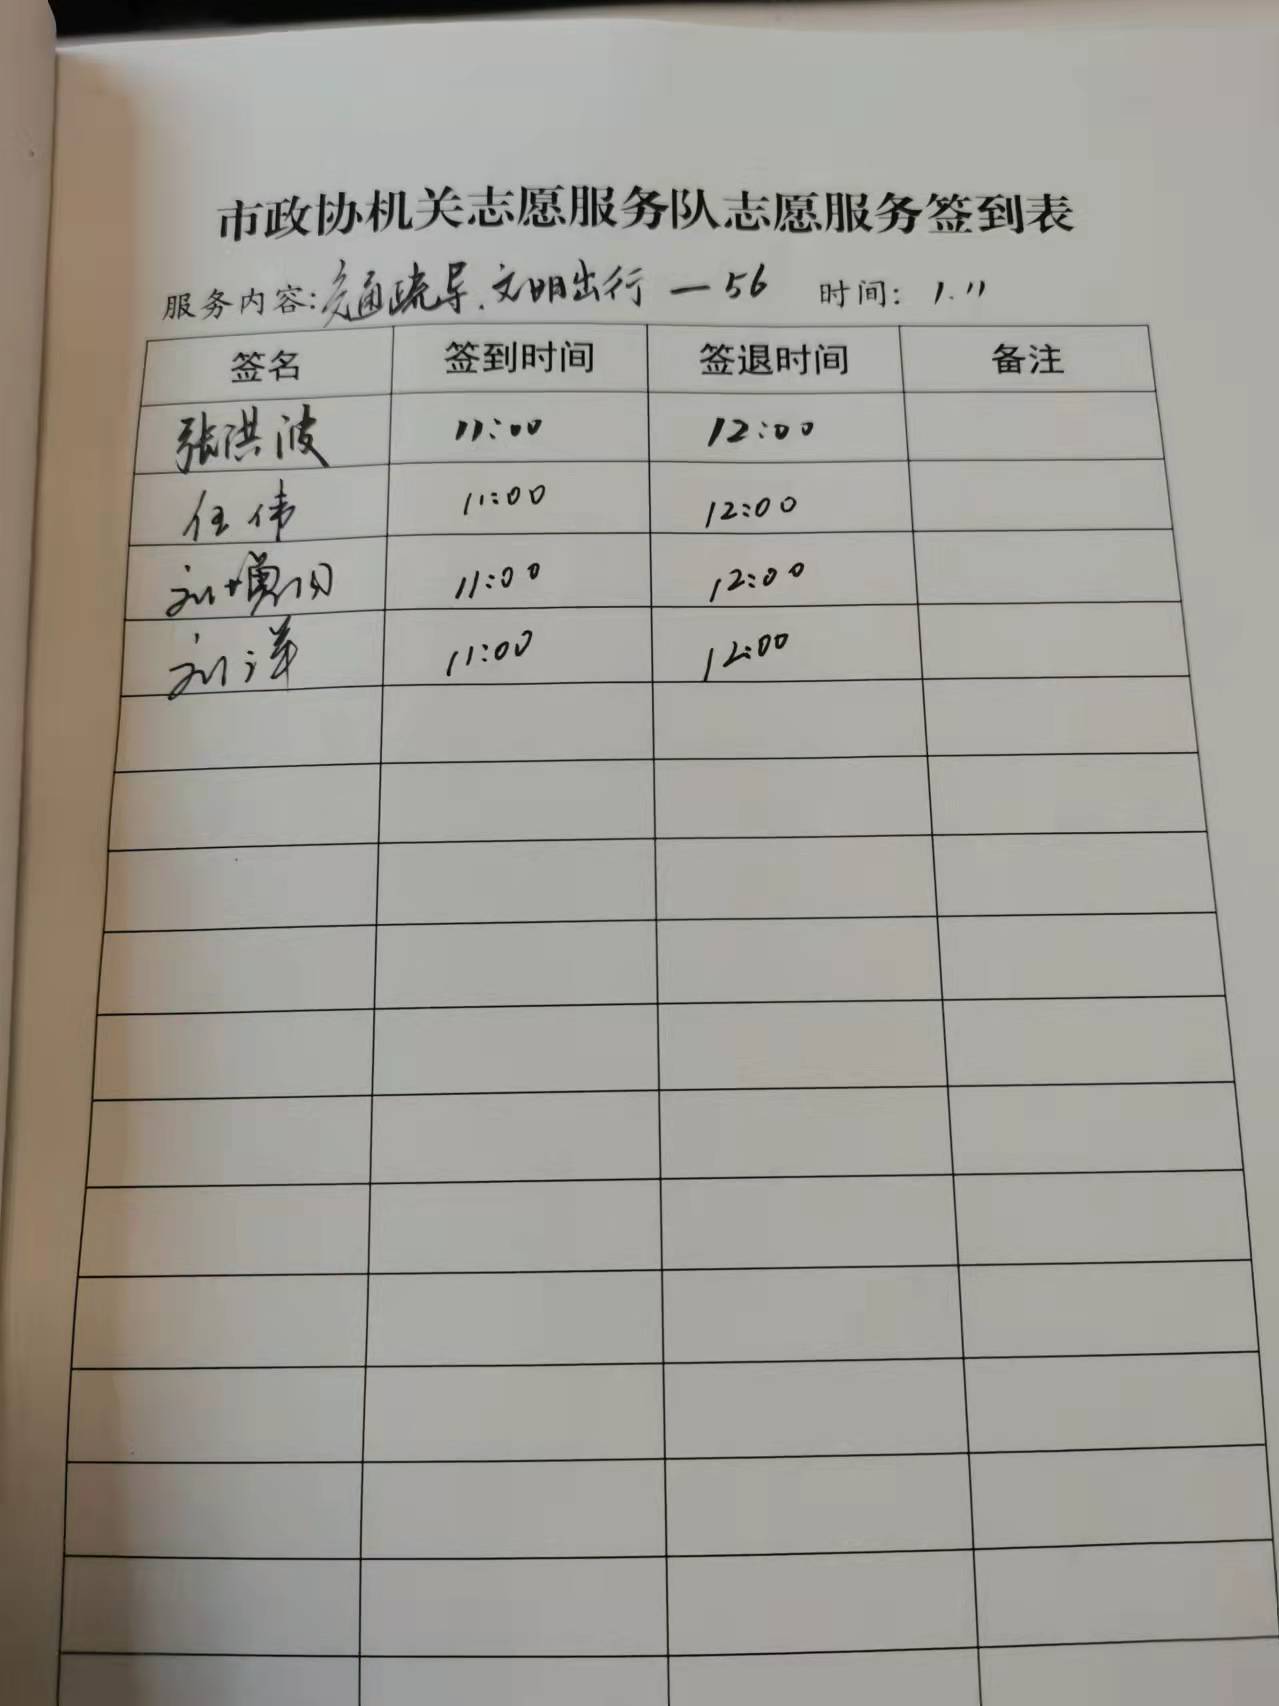 市政协机关志愿服务队志愿服务签到表
服务内容:交通疏导.文明出行 — 56 时间: 1.11
签名 签到时间 签退时间 备注
张洪波 11:00 12:00
任伟 11:00 12:00
刘增 11:00 12:00
刘洋 11:00 12:00